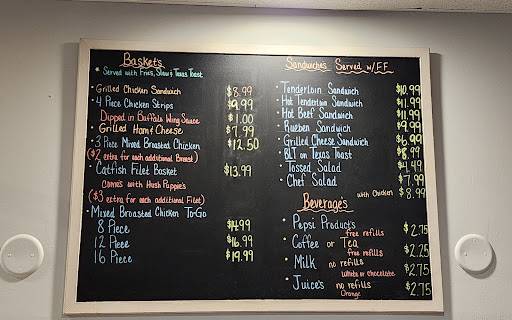 Baskets
• Served with Fries, Slaw & Texas Toast
• Grilled Chicken Sandwich $8.99
• 4 Piece Chicken Strips $9.99
Dipped in Buffalo Wing Sauce $1.00
• Grilled Ham & Cheese $7.99
• 3 Piece Mixed Broasted Chicken $12.50
($2 extra for each additional Breast)
• Catfish Filet Basket $13.99
Comes with Hush Puppie's
($3 extra for each additional Filet)
• Mixed Broasted Chicken To-Go
8 Piece $14.99
12 Piece $16.99
16 Piece $19.99
Sandwiches Served w/F.F.
• Tenderloin Sandwich $10.99
• Hot Tenderloin Sandwich $11.99
• Hot Beef Sandwich $11.99
• Rueben Sandwich $9.99
• Grilled Cheese Sandwich $6.99
• BLT on Texas Toast $8.99
• Tossed Salad $4.49
• Chef Salad $7.99
with Chicken $8.99
Beverage's
• Pepsi Product's
free refills $2.75
• Coffee or Tea
free refills $2.25
• Milk no refills
White or chocolate $2.75
• Juice's no refills
Orange $2.75